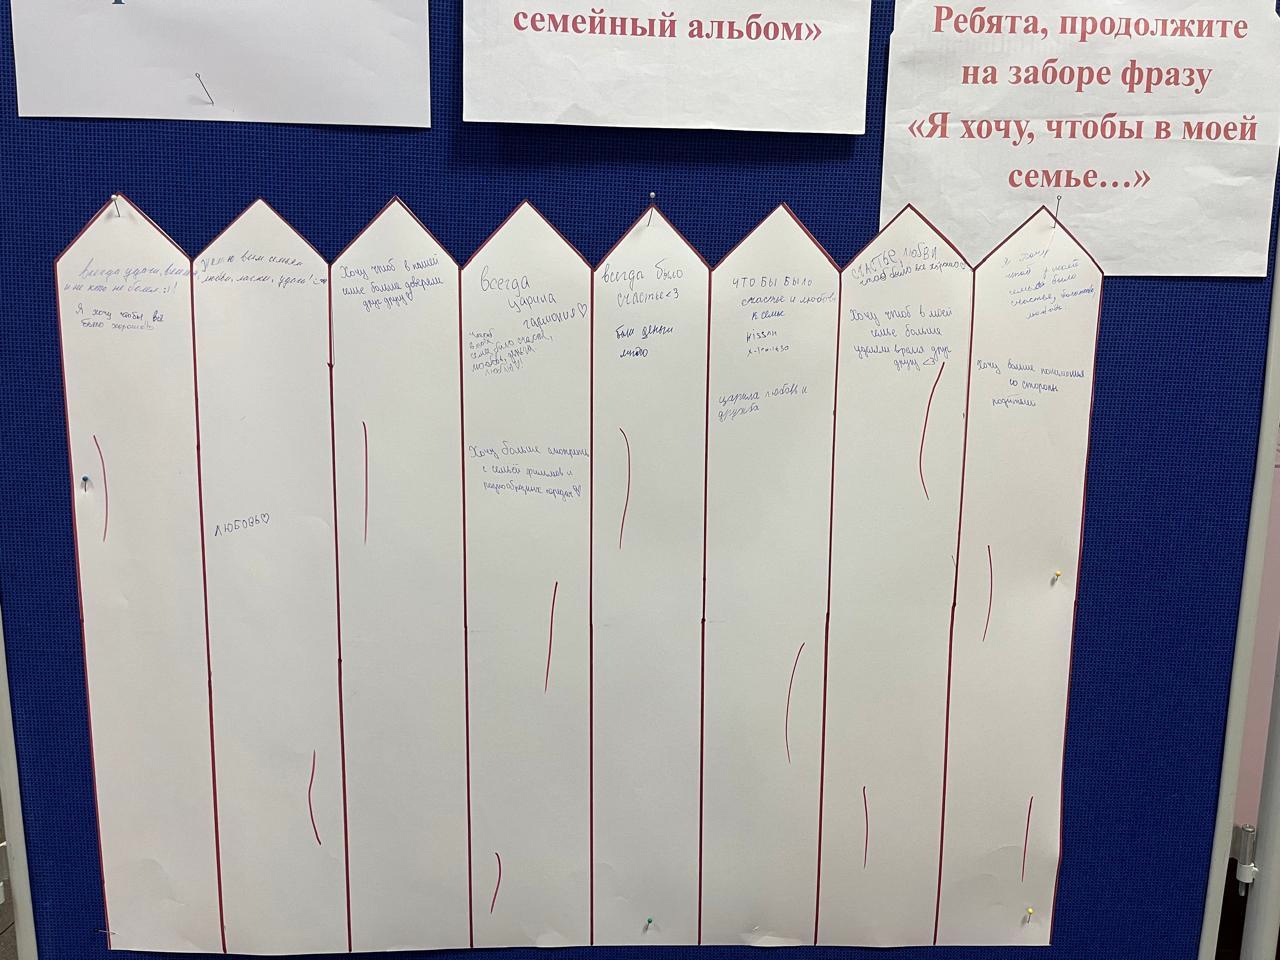 семейный альбом»
Ребята, продолжите
на заборе фразу
«Я хочу, чтобы в моей
семье...»
Всегда удачи,
и не кто не болел :)!
Я хочу чтобы всё
было хорошо!!
Желаю всем семьям
любви, ласки, удачи!
ЛЮБОВЬ♡
Хочу чтоб в нашей
семье больше доверяли
друг другу
всегда
царила
гармония♡
чтоб
в моей
семье было счастье,
любовь,
Хочу больше смотреть
с семьёй фильмов и
разнообразных передач
всегда было
счастье<3
был деньги
много
ЧТО БЫ БЫЛО
счастье и любовь
в семье
царила любовь и
дружба
СЧАСТЬЕ, ЛЮБВИ
чтоб было всё хорошо
Хочу чтоб в моей
семье больше
уделяли время друг
другу <3
Я хочу
чтоб в моей
семье было
счастье, богатство,
любовь!
Хочу больше понимания
со стороны
родители